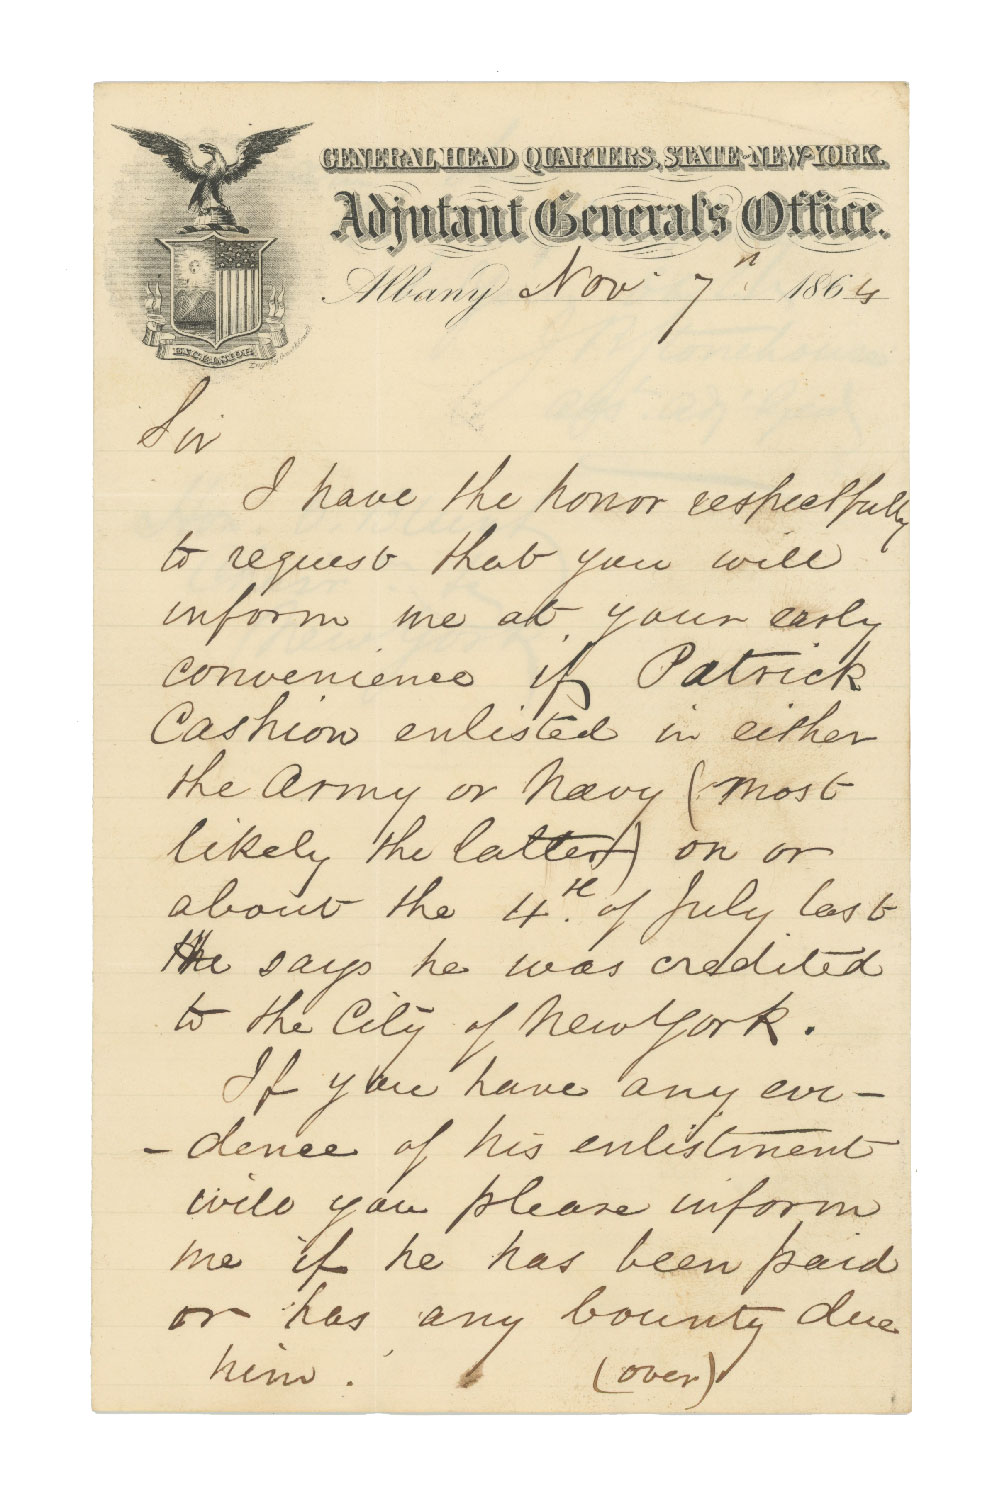 GENERAL HEAD QUARTERS, STATE-NEW-YORK.
Adjutant General's Office.
Albany Nov 7th 1864
EXCELSIOR
Sir
I have the honor respectfully
to request that you will
inform me at your early
convenience if Patrick
Cashion enlisted in either
the Army or Navy (most
likely the latter) on or
about the 4th of July last
He says he was credited
to the City of New York.
If you have any evi-
-dence of his enlistment
will you please inform
me if he has been paid
or has any bounty due
him.
(over)